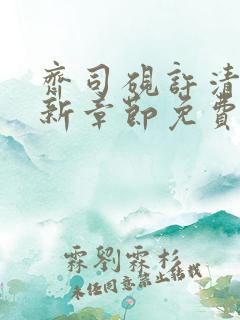 齊司硯許清
新章節免費
霖劉霖杉
未經同意禁止轉載